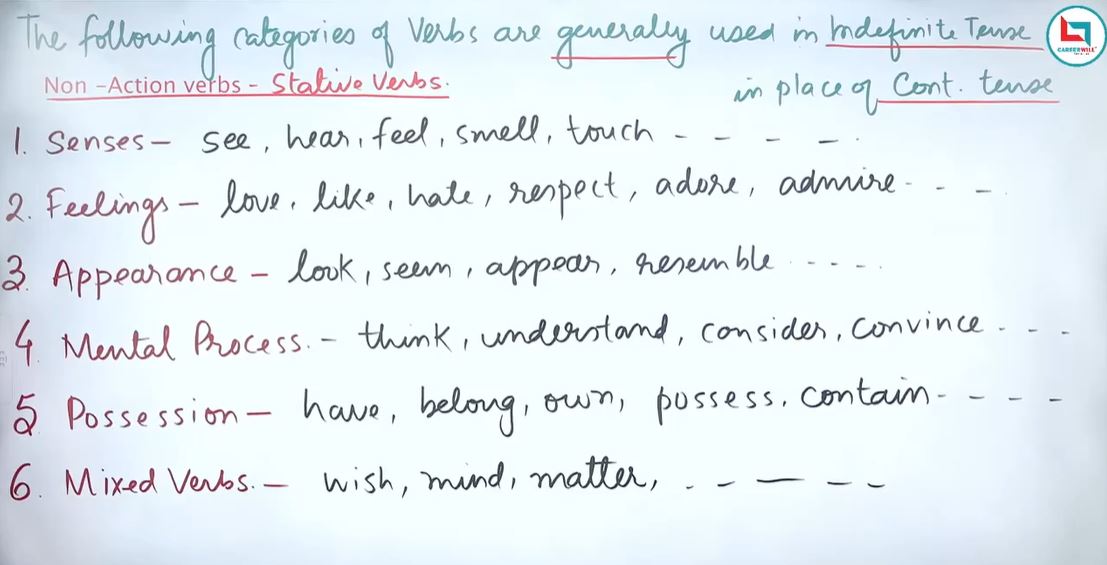 The following categories of Verbs are generally used in Indefinite Tense
in place of Cont. tense
Non -Action verbs - Stative Verbs.
1. Senses – see, hear, feel, smell, touch - - - - .
2. Feelings – love, like, hate, respect, adore, admire - - -
3. Appearance – look, seem, appear, resemble - - - - .
4 Mental Process. - think, understand, consider, convince - - -
5 Possession – have, belong, own, possess, contain - - - -
6. Mixed Verbs. – wish, mind, matter, - - — - -
CAREERWILL